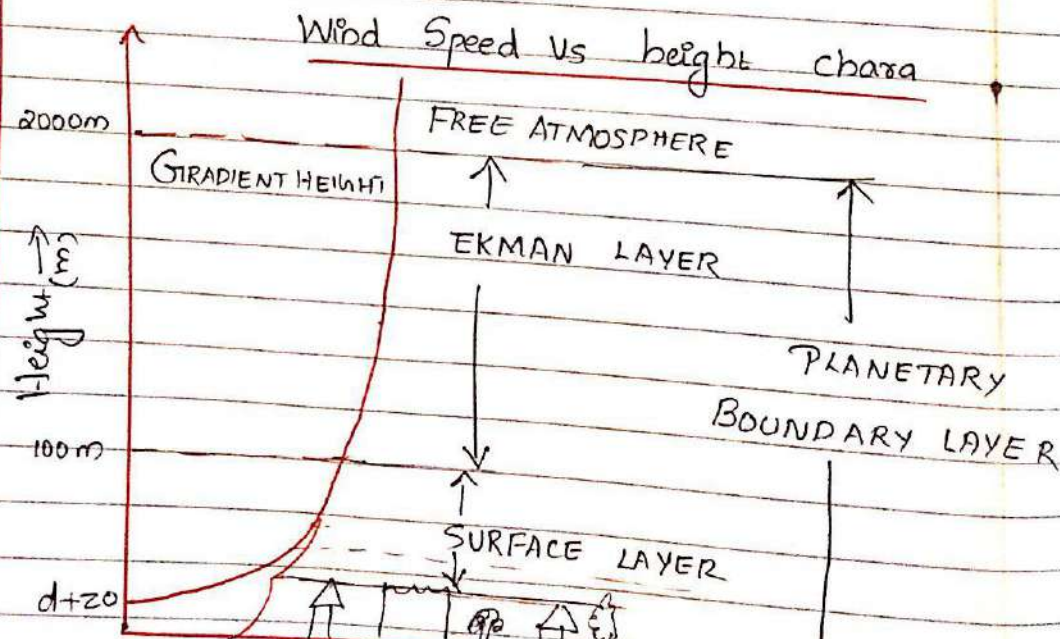 Wind Speed Vs height chara
2000m
FREE ATMOSPHERE
GRADIENT HEIGHT
EKMAN LAYER
Height → (m)
PLANETARY
BOUNDARY LAYER
100m
SURFACE LAYER
d+z0